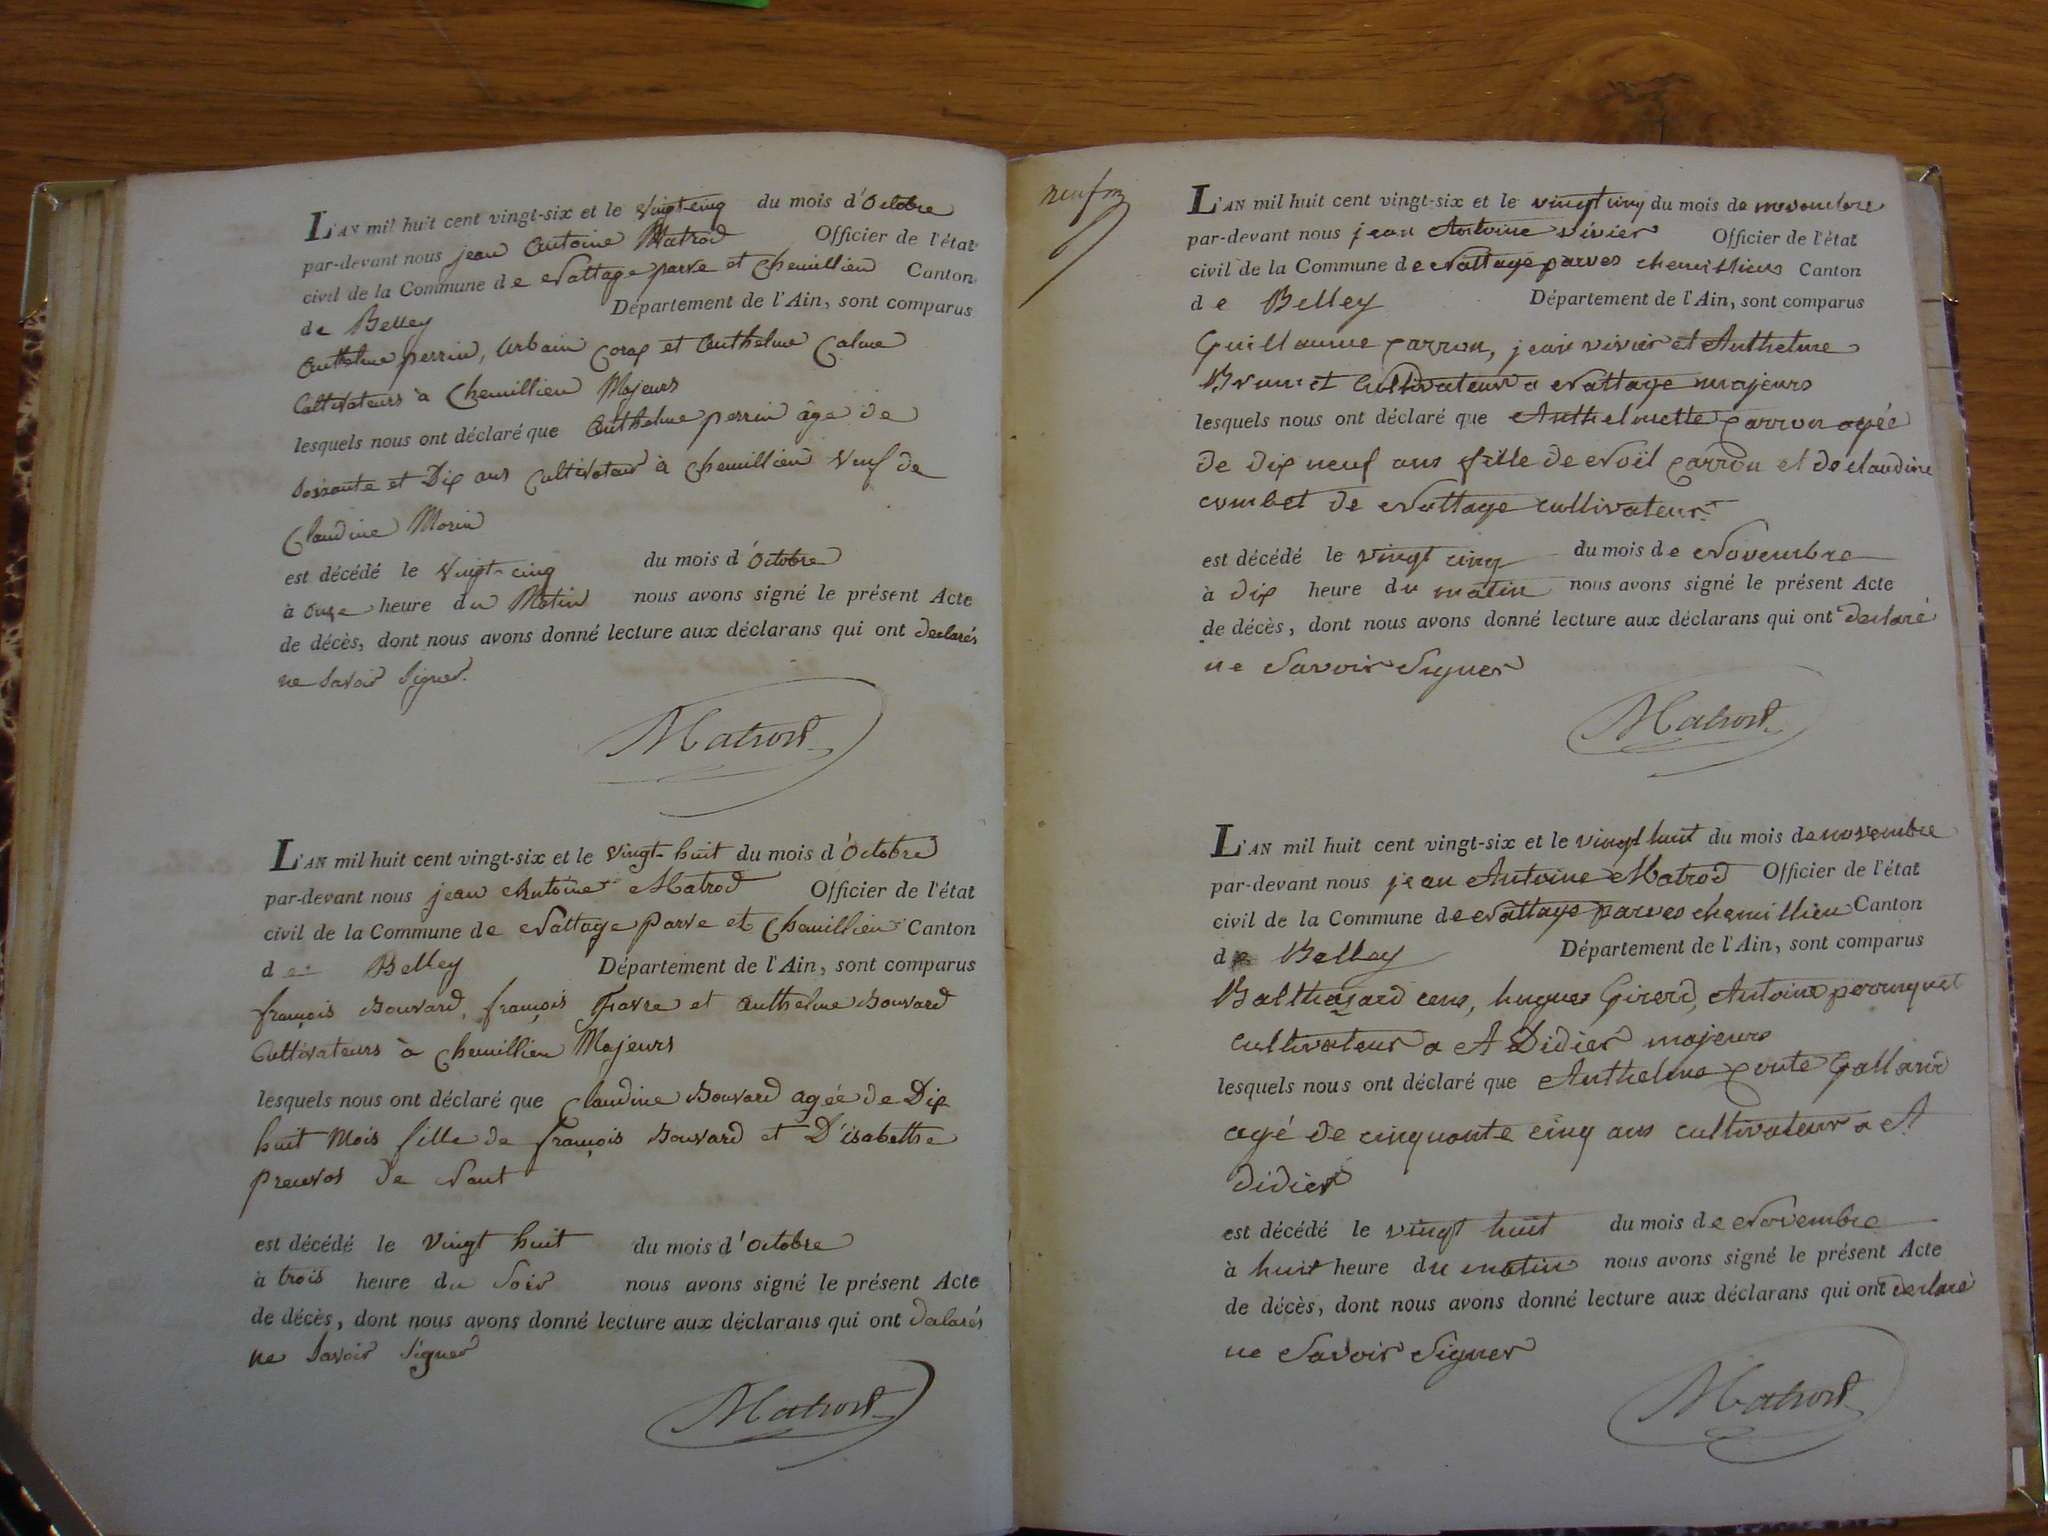 L'AN mil huit cent vingt-six et le vingt-cinq du mois d'Octobre
par-devant nous jean Antoine Matrod Officier de l'état
civil de la Commune de Nattage parve et Chemillieu Canton
de Belley Département de l'Ain, sont comparus
Anthelme perrin, Urbain Corap et Anthelme Calme
Cultivateurs à Chemillieu Majeurs
lesquels nous ont déclaré que Anthelme perrin âgé de
soixante et Dix ans Cultivateur à Chemillieu veuf de
Claudine Morin
est décédé le vingt-cinq du mois d'Octobre
à onze heure du Matin nous avons signé le présent Acte
de décès, dont nous avons donné lecture aux déclarans qui ont declarés
ne Savoir Signer.
Matrod
L'AN mil huit cent vingt-six et le vingt-huit du mois d'Octobre
par-devant nous jean Antoine Matrod Officier de l'état
civil de la Commune de Nattage Parve et Chemillieu Canton
de Belley Département de l'Ain, sont comparus
françois Bouvard, françois Favre et Anthelme Bouvard
Cultivateurs à Chemillieu Majeurs
lesquels nous ont déclaré que Claudine Bouvard agée de Dix
huit Mois fille de françois Bouvard et D'isabethe
de Nant
est décédé le vingt huit du mois d'octobre
à trois heure du Soir nous avons signé le présent Acte
de décès, dont nous avons donné lecture aux déclarans qui ont déclarés
ne Savoir Signer
Matrod
L'AN mil huit cent vingt-six et le vingt cinq du mois de novembre
par-devant nous jean Antoine vivier Officier de l'état
civil de la Commune de Nattage parves chemillieu Canton
de Belley Département de l'Ain, sont comparus
Guillaume carron, jean vivier et Anthelme
Brunet Cultivateur a Nattage majeurs
lesquels nous ont déclaré que Anthelmette carron agée
de dix neuf ans fille de Noël carron et de claudine
combet de Nattage cultivateur
est décédé le vingt cinq du mois de Novembre
à dix heure du matin nous avons signé le présent Acte
de décès, dont nous avons donné lecture aux déclarans qui ont declaré
ne Savoir Signer
Matrod
L'AN mil huit cent vingt-six et le vingt huit du mois de novembre
par-devant nous jean Antoine Matrod Officier de l'état
civil de la Commune de Nattage parves chemillieu Canton
de Belley Département de l'Ain, sont comparus
Balthazard hugues Girerd, Antoine perruquet
cultivateur a St Didier majeurs
lesquels nous ont déclaré que Anthelme conte Galland
agé de cinquante cinq ans cultivateur a St
didier
est décédé le vingt huit du mois de Novembre
à huit heure du matin nous avons signé le présent Acte
de décès, dont nous avons donné lecture aux déclarans qui ont declaré
ne Savoir Signer
Matrod